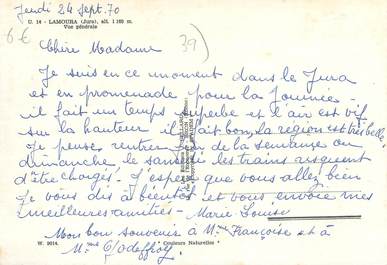 Jeudi 24 Sept. 70
U. 14 - LAMOURA (Jura), alt. 1 160 m.
Vue générale
6 €
39)
Chère Madame
Je suis en ce moment dans le Jura
et en promenade pour la journée -
il fait un temps superbe et l'air est vif
sur la hauteur il fait bon, la région est très belle.
Je pense rentrer fin de la semaine ou
dimanche le samedi les trains risquent
d'être chargés. J'espère que vous allez bien
je vous dis à bientôt et vous envoie mes
meilleures amitiés - Marie Louise
Mon bon souvenir à Mme Françoise et à
M. Godeffroy.
W. 9014. "Couleurs Naturelles"